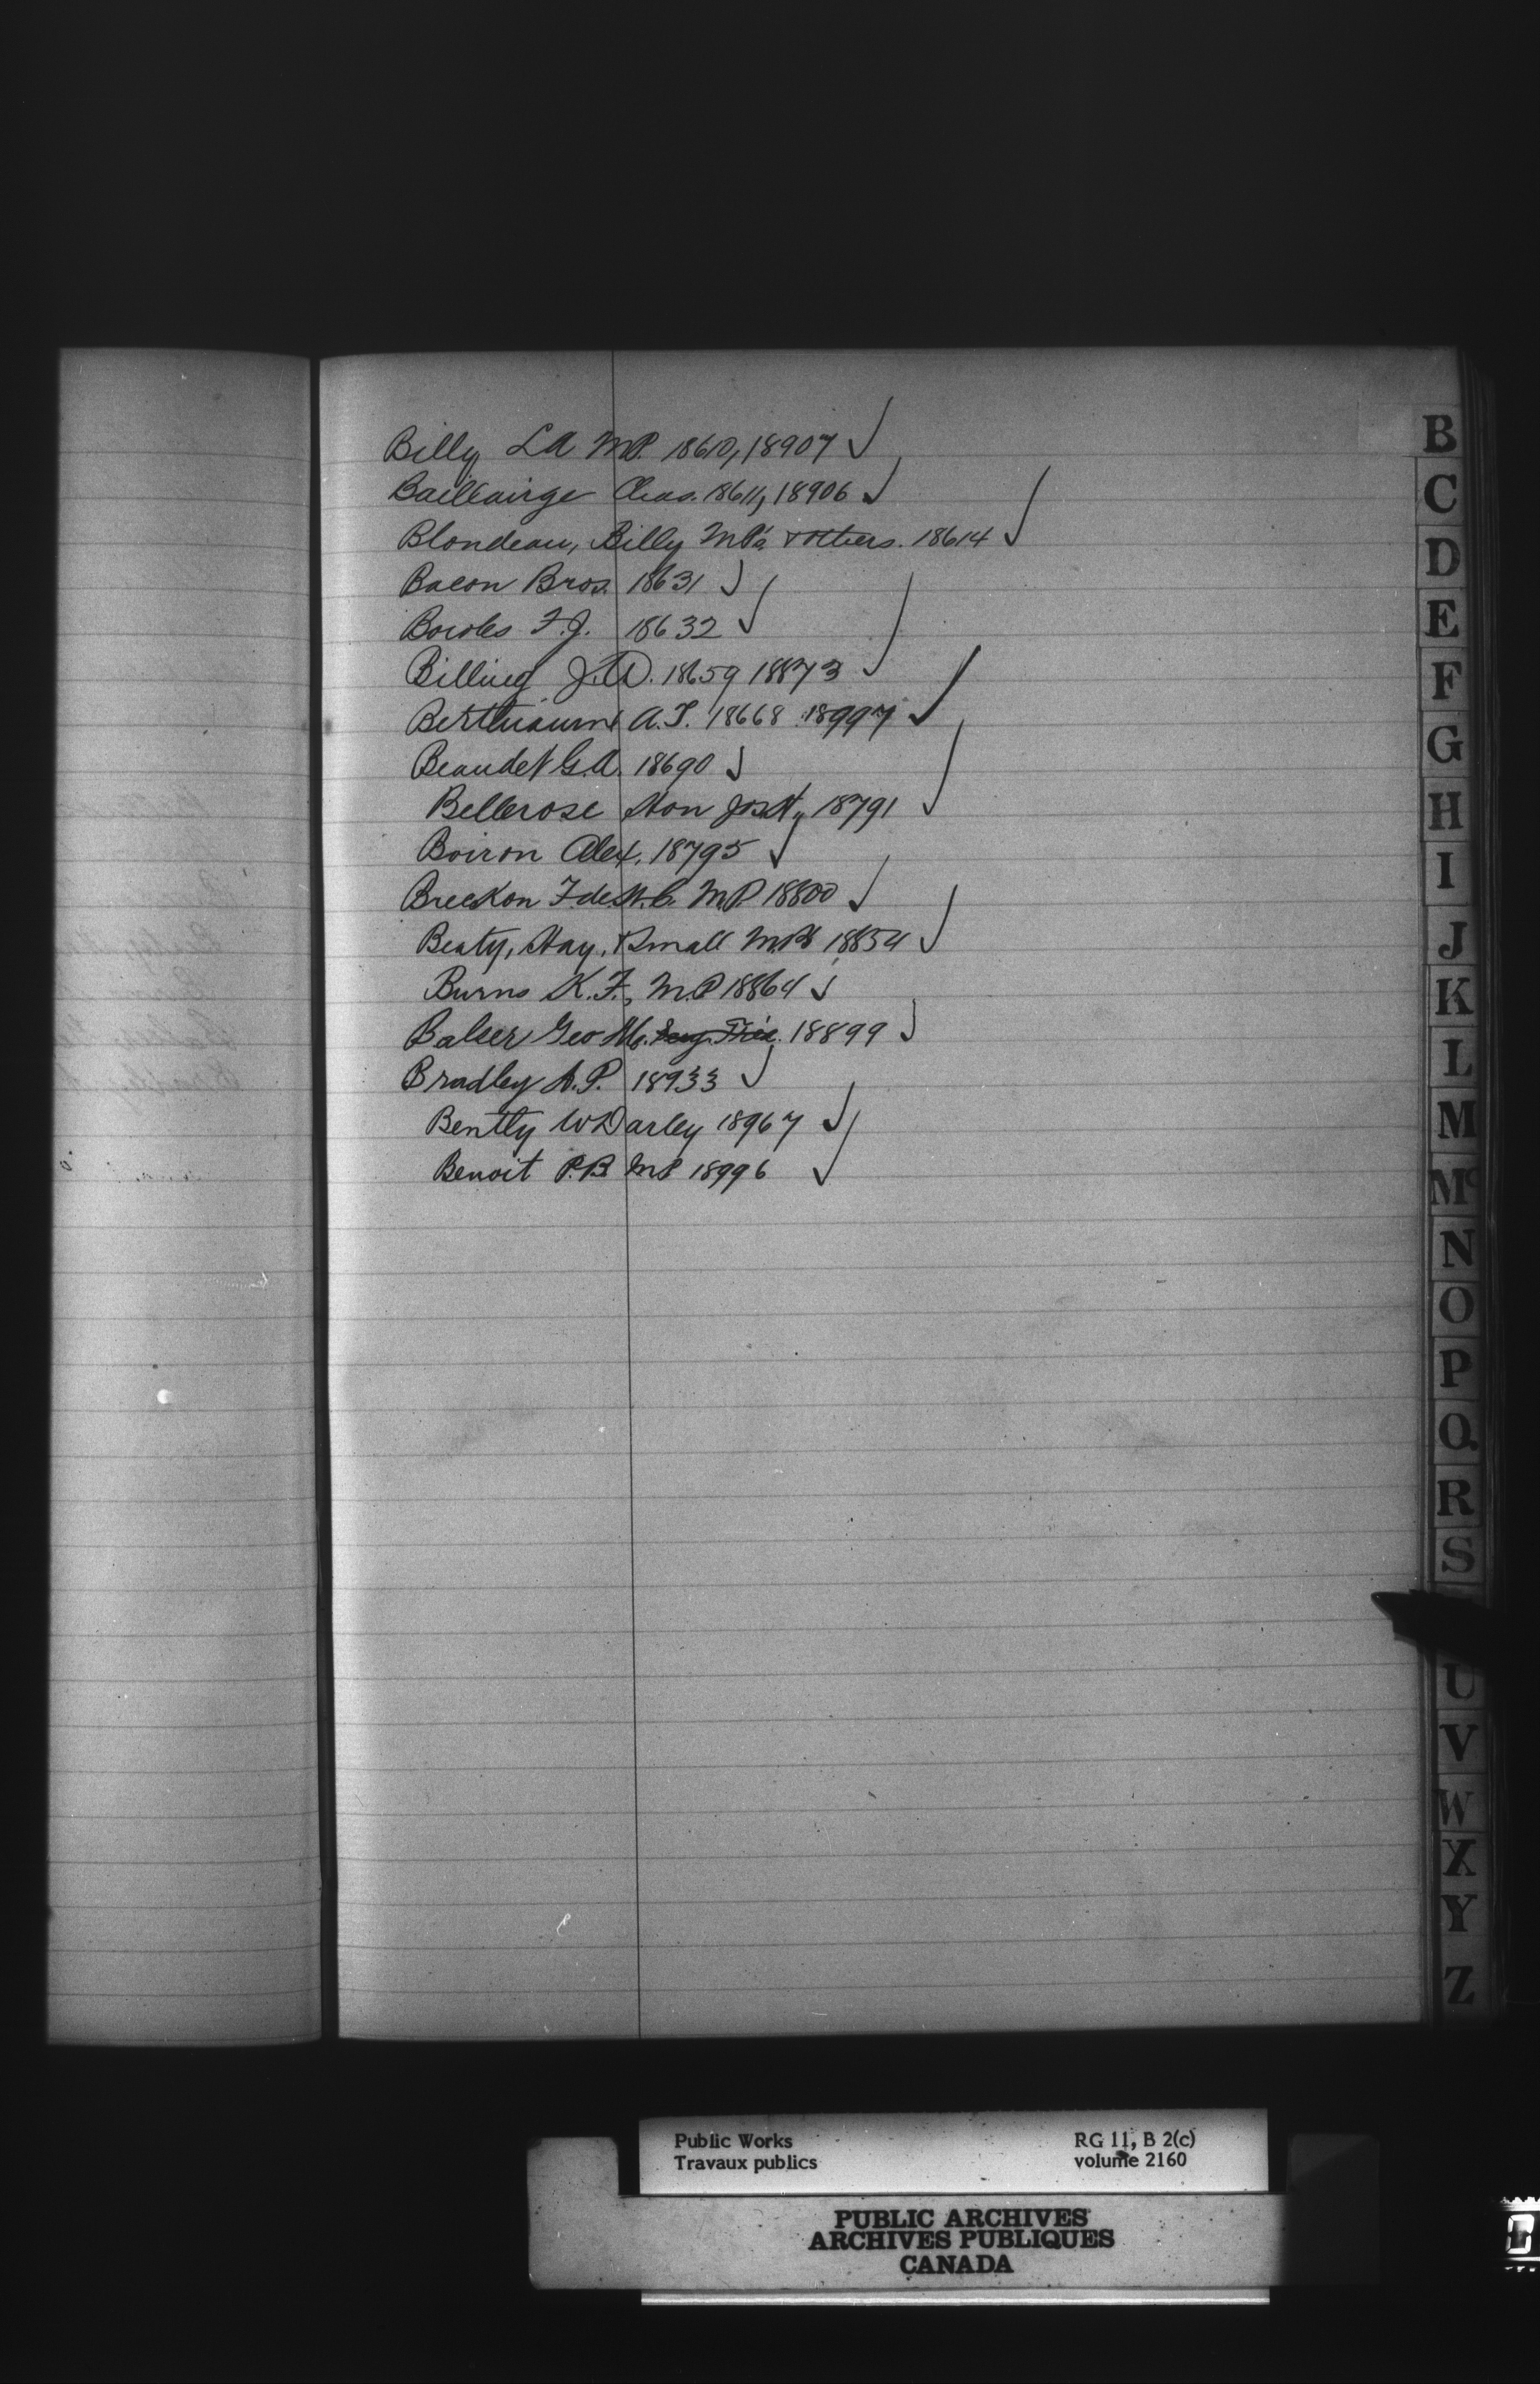 Billy L A M.P. 18610, 18907 ✓
Baillairge Chas. 18611, 18906 ✓
Blondeau, Billy M.P's & others. 18614 ✓
Bacon Bros. 18631 ✓
Bowles F.J. 18632 ✓
Billing J.W. 18659 18873 ✓
Berthiaume A.T. 18668 18997 ✓
Beaudet G.A. 18690 ✓
Bellerose Hon Jos H, 18791 ✓
Boiron Alex. 18795 ✓
Brecken F de St. C. M.P 18800 ✓
Beaty, Hay, & Small M.P's 18854 ✓
Burns K. F., M.P 18864 ✓
Balser Geo M. 18899 ✓
Bradley A.P. 18933 ✓
Bently W Darley 18967 ✓
Benoit P.B MP 18996 ✓
B
C
D
E
F
G
H
I
J
K
L
M
Mc
N
O
P
Q
R
S
U
V
W
X
Y
Z
Public Works RG 11, B 2(c)
Travaux publics volume 2160
PUBLIC ARCHIVES
ARCHIVES PUBLIQUES
CANADA